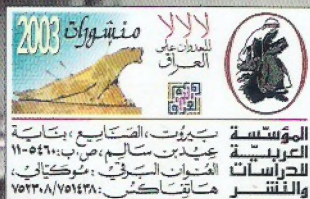 منشورات 2003
لا لا لا
للعدوان على
العراق
المؤسسة
العربية
للدراسات
والنشر
بيروت، الصنايع، بناية
عيد بن سالم، ص.ب: ٥٤٦٠-١١
العنوان البرقي: موكيالي،
هاتفاكس: ٧٥٢٣٠٨/٧٥١٤٣٨